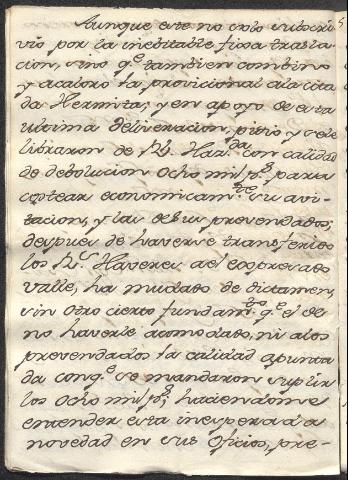 Aunque este no solo subscri
vio por la inebitable fixa trasla-
cion, sino q.e tambien combino
y acaloro la provicional a la cita
da Hermita; y en apoyo de esta
ultima deliveracion, pidio y se le
libraron de R.l Haz.da con calidad
de debolucion ocho mil p.s para
costear economicam.te su avi-
tacion, y las de sus prevendados;
despues de haverse transferido
los R.s Haveres al expresado
valle, ha mudado de dictamen,
sin otro cierto fundam.to q.e el de
no haverle acomodado, ni a los
prevendados la calidad apunta
da con q.e se mandaron suplir
los ocho mil p.s, haciendome
entender esta inesperada
novedad en sus oficios, pre-